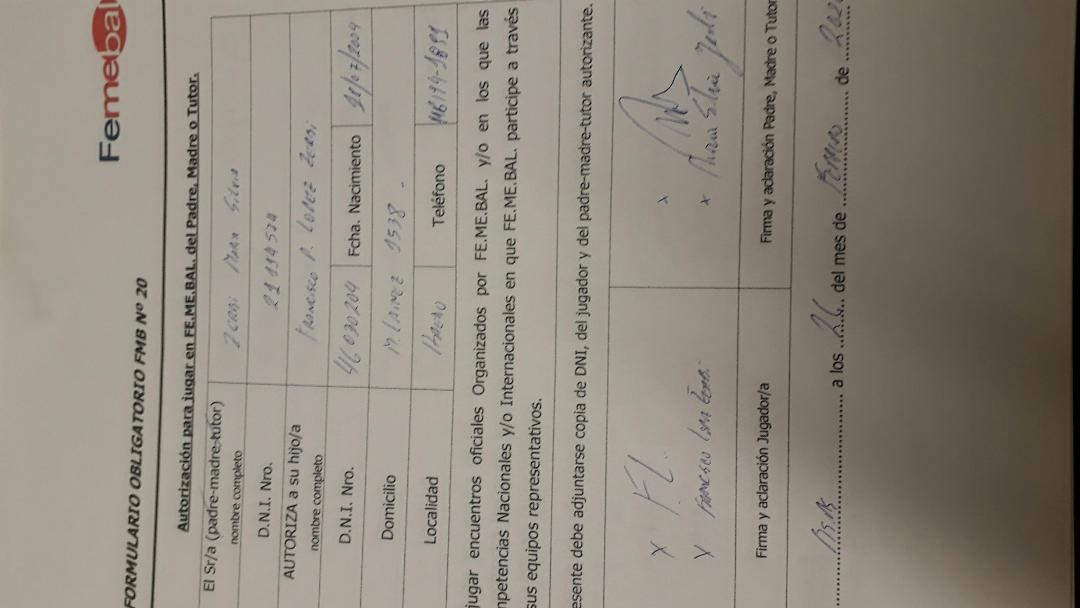 Femebal
FORMULARIO OBLIGATORIO FMB Nº 20
Autorización para jugar en FE.ME.BAL. del Padre, Madre o Tutor.
El Sr/a (padre-madre-tutor)
nombre completo
Maria Silvia
D.N.I. Nro.
AUTORIZA a su hijo/a
nombre completo
Francisco P. Lopez
D.N.I. Nro. 46030204 Fcha. Nacimiento
Domicilio
Localidad Teléfono
jugar encuentros oficiales Organizados por FE.ME.BAL. y/o en los que las
mpetencias Nacionales y/o Internacionales en que FE.ME.BAL. participe a través
sus equipos representativos.
esente debe adjuntarse copia de DNI, del jugador y del padre-madre-tutor autorizante.
x FL. x
x Francisco x Maria Silvia
Firma y aclaración Jugador/a Firma y aclaración Padre, Madre o Tutor
a los 26 del mes de Febrero de